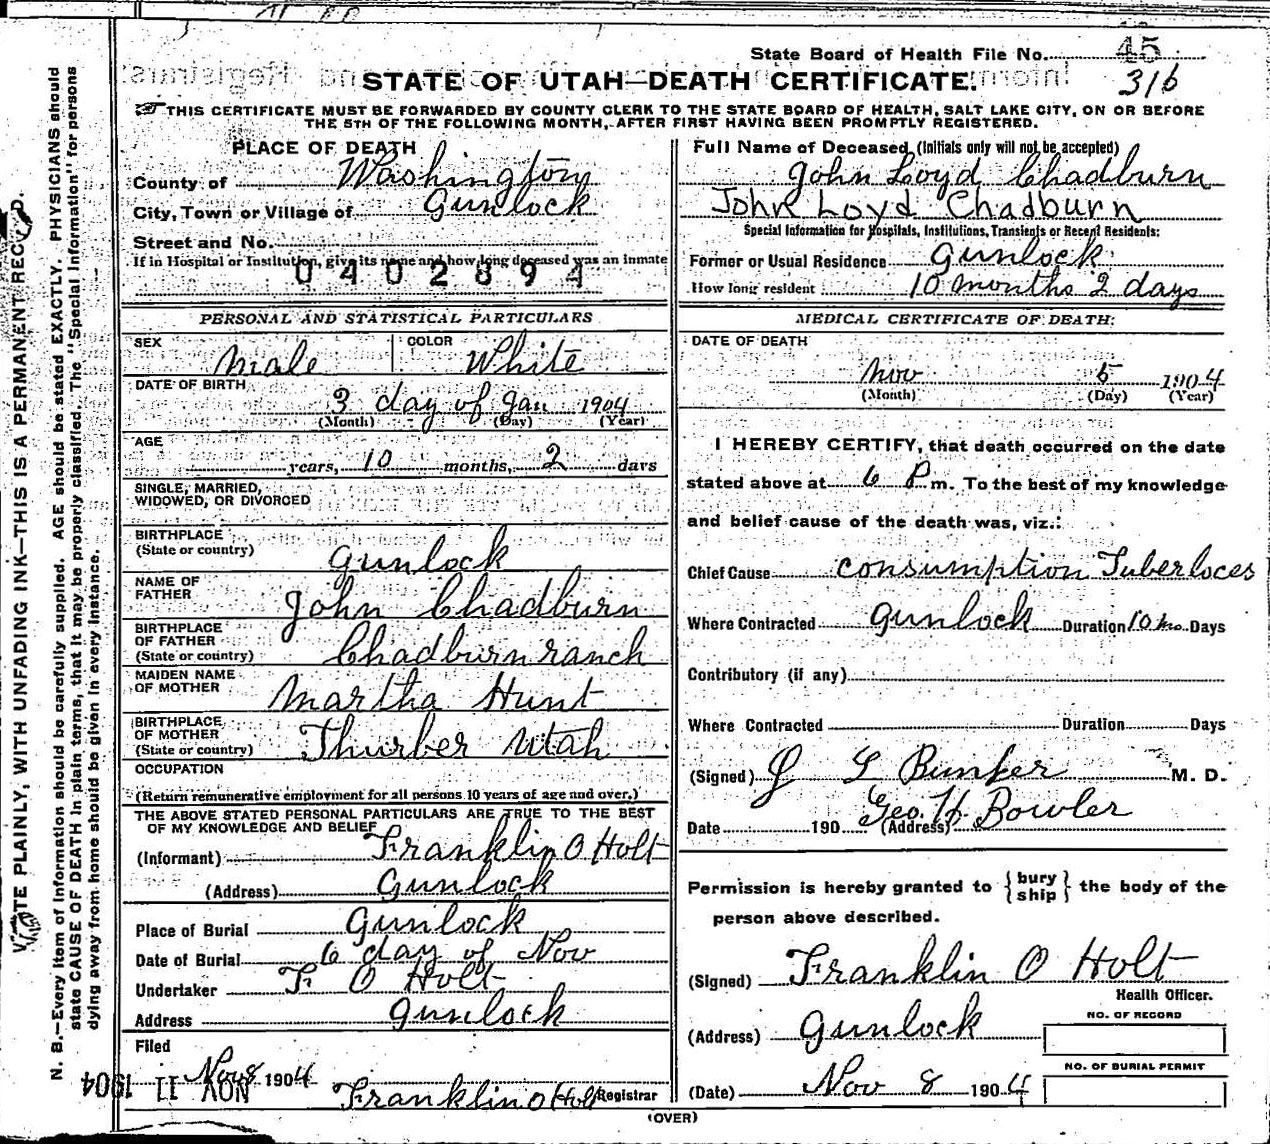 State Board of Health File No. 45
STATE OF UTAH—DEATH CERTIFICATE. 316
THIS CERTIFICATE MUST BE FORWARDED BY COUNTY CLERK TO THE STATE BOARD OF HEALTH, SALT LAKE CITY, ON OR BEFORE
THE 5TH OF THE FOLLOWING MONTH, AFTER FIRST HAVING BEEN PROMPTLY REGISTERED.
PLACE OF DEATH
County of Washington
City, Town or Village of Gunlock
Street and No.
If in Hospital or Institution, give its name and how long deceased was an inmate
0402894
PERSONAL AND STATISTICAL PARTICULARS
SEX Male COLOR White
DATE OF BIRTH
3 day of Jan 1904
(Month) (Day) (Year)
AGE
years, 10 months, 2 days
SINGLE, MARRIED,
WIDOWED, OR DIVORCED
BIRTHPLACE
(State or country) Gunlock
NAME OF
FATHER John Chadburn
BIRTHPLACE
OF FATHER
(State or country) Chadburn ranch
MAIDEN NAME
OF MOTHER Martha Hunt
BIRTHPLACE
OF MOTHER
(State or country) Thurber Utah
OCCUPATION
(Return remunerative employment for all persons 10 years of age and over.)
THE ABOVE STATED PERSONAL PARTICULARS ARE TRUE TO THE BEST
OF MY KNOWLEDGE AND BELIEF
(Informant) Franklin O Holt
(Address) Gunlock
Place of Burial Gunlock
Date of Burial 6 day of Nov
Undertaker F O Holt
Address Gunlock
Filed
Nov 8 1904 Franklin O Holt Registrar
NOV 11 1904
Full Name of Deceased (Initials only will not be accepted)
John Loyd Chadburn
John Loyd Chadburn
Special Information for Hospitals, Institutions, Transients or Recent Residents:
Former or Usual Residence Gunlock
How long resident 10 months 2 days
MEDICAL CERTIFICATE OF DEATH:
DATE OF DEATH
Nov 5 1904
(Month) (Day) (Year)
I HEREBY CERTIFY, that death occurred on the date
stated above at 6 P m. To the best of my knowledge
and belief cause of the death was, viz.:
Chief Cause consumption Tuberloces
Where Contracted Gunlock Duration 10 mo. Days
Contributory (if any)
Where Contracted Duration Days
(Signed) J G Bunker M. D.
Geo. H. Bowler
Date 190 (Address)
Permission is hereby granted to {bury
ship} the body of the
person above described.
(Signed) Franklin O Holt
Health Officer.
(Address) Gunlock
NO. OF RECORD
NO. OF BURIAL PERMIT
(Date) Nov 8 1904
(OVER)
WRITE PLAINLY, WITH UNFADING INK—THIS IS A PERMANENT RECORD.
N. B.—Every item of information should be carefully supplied. AGE should be stated EXACTLY. PHYSICIANS should
state CAUSE OF DEATH in plain terms, that it may be properly classified. The "Special Information" for persons
dying away from home should be given in every instance.